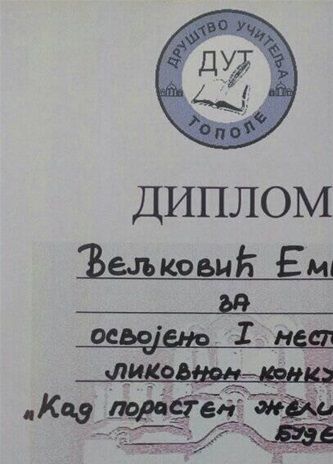 ДРУШТВО УЧИТЕЉА
ДУТ
ТОПОЛЕ
ДИПЛОМ
Вељковић Ем
за
освојено I место
ликовном конку
„Кад порастем жели
буде